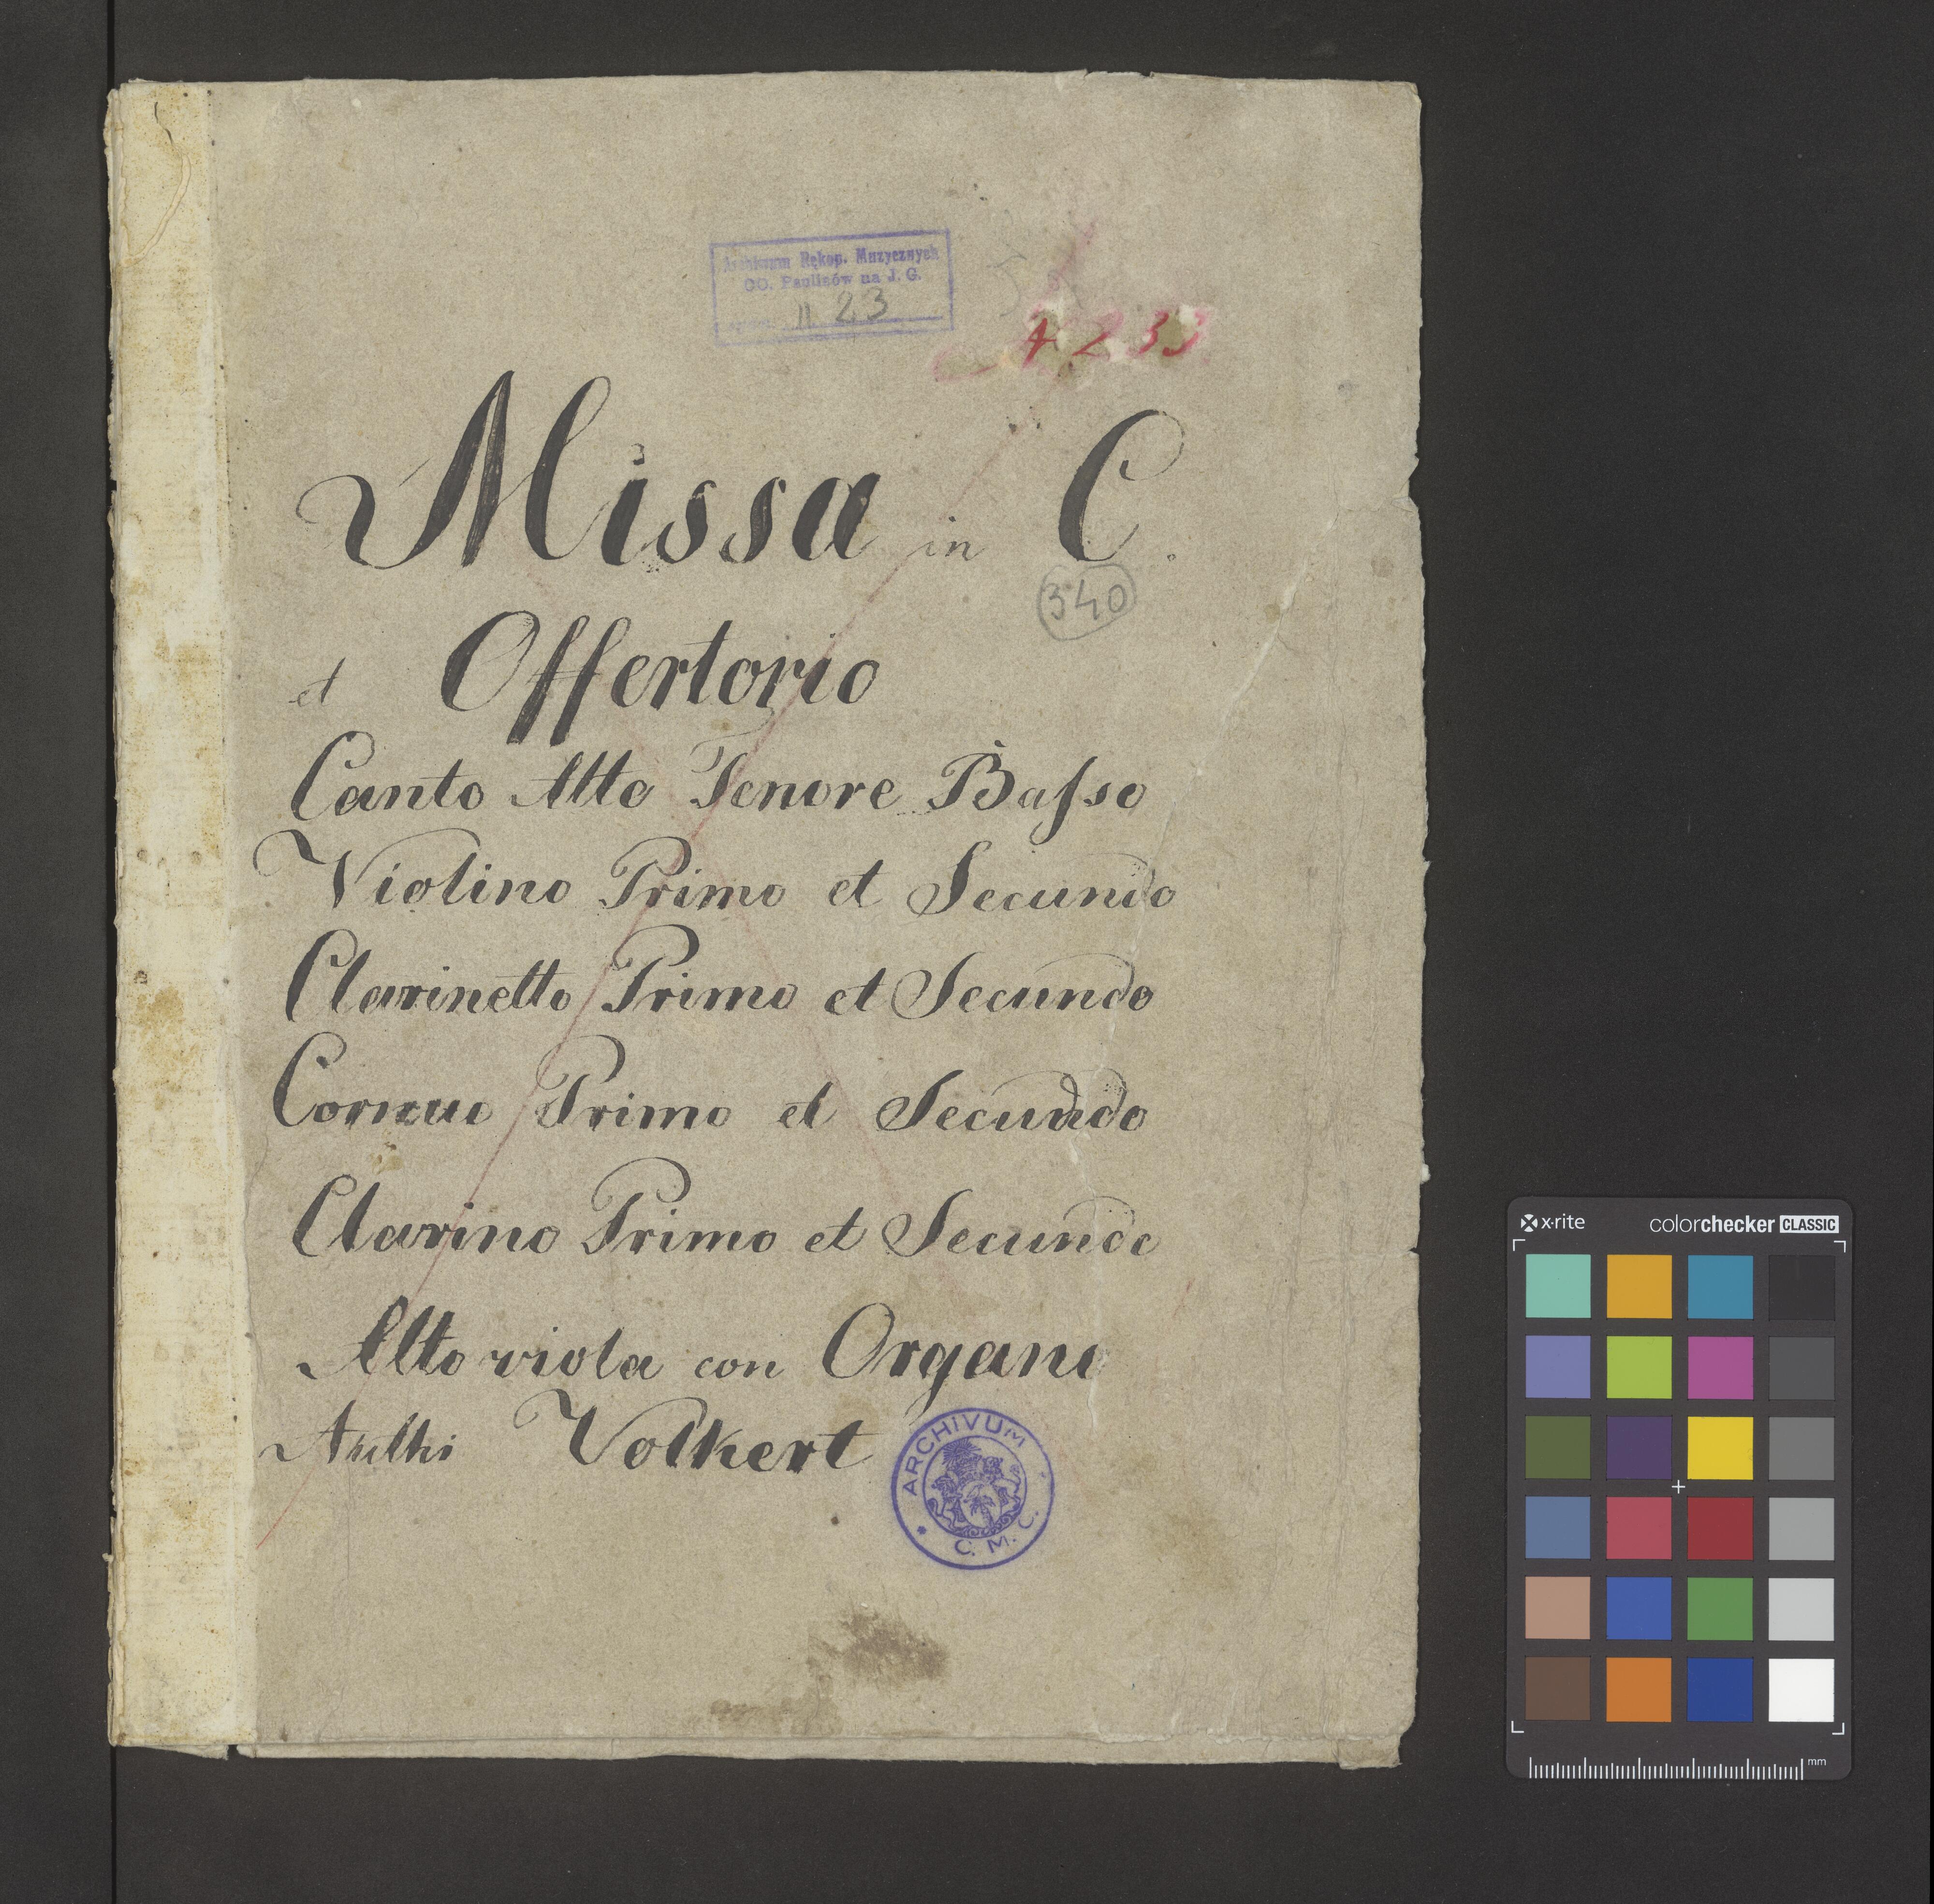 Archiwum Rękop. Muzycznych
OO. Paulinów na J. G.
II 23
A 233
Missa in C.
340
et Offertorio
Canto Alto Tenore Basso
Violino Primo et Secundo
Clarinetto Primo et Secundo
Primo et Secundo
Clarino Primo et Secundo
Alto viola con Organo
Volkert
ARCHIVUM
* C. M. C.
x-rite colorchecker CLASSIC
mm